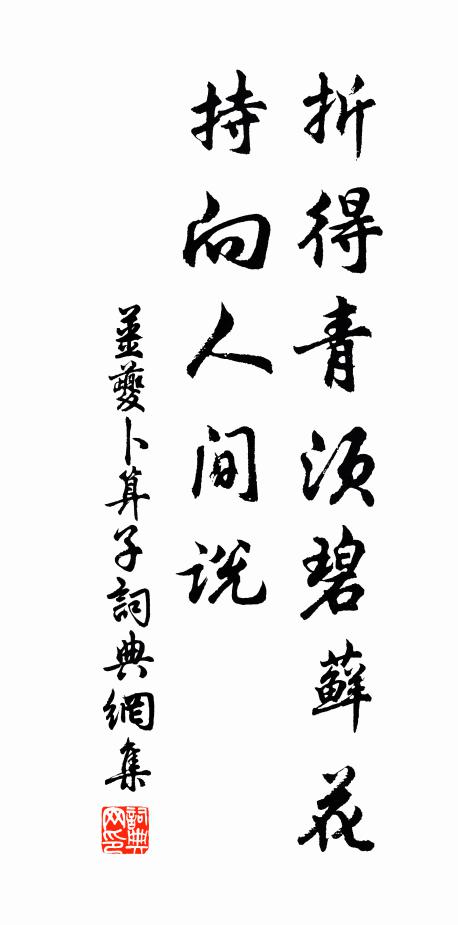 折得青须碧藓花
持向人间说
姜夔卜算子詞典網集
詞典网印